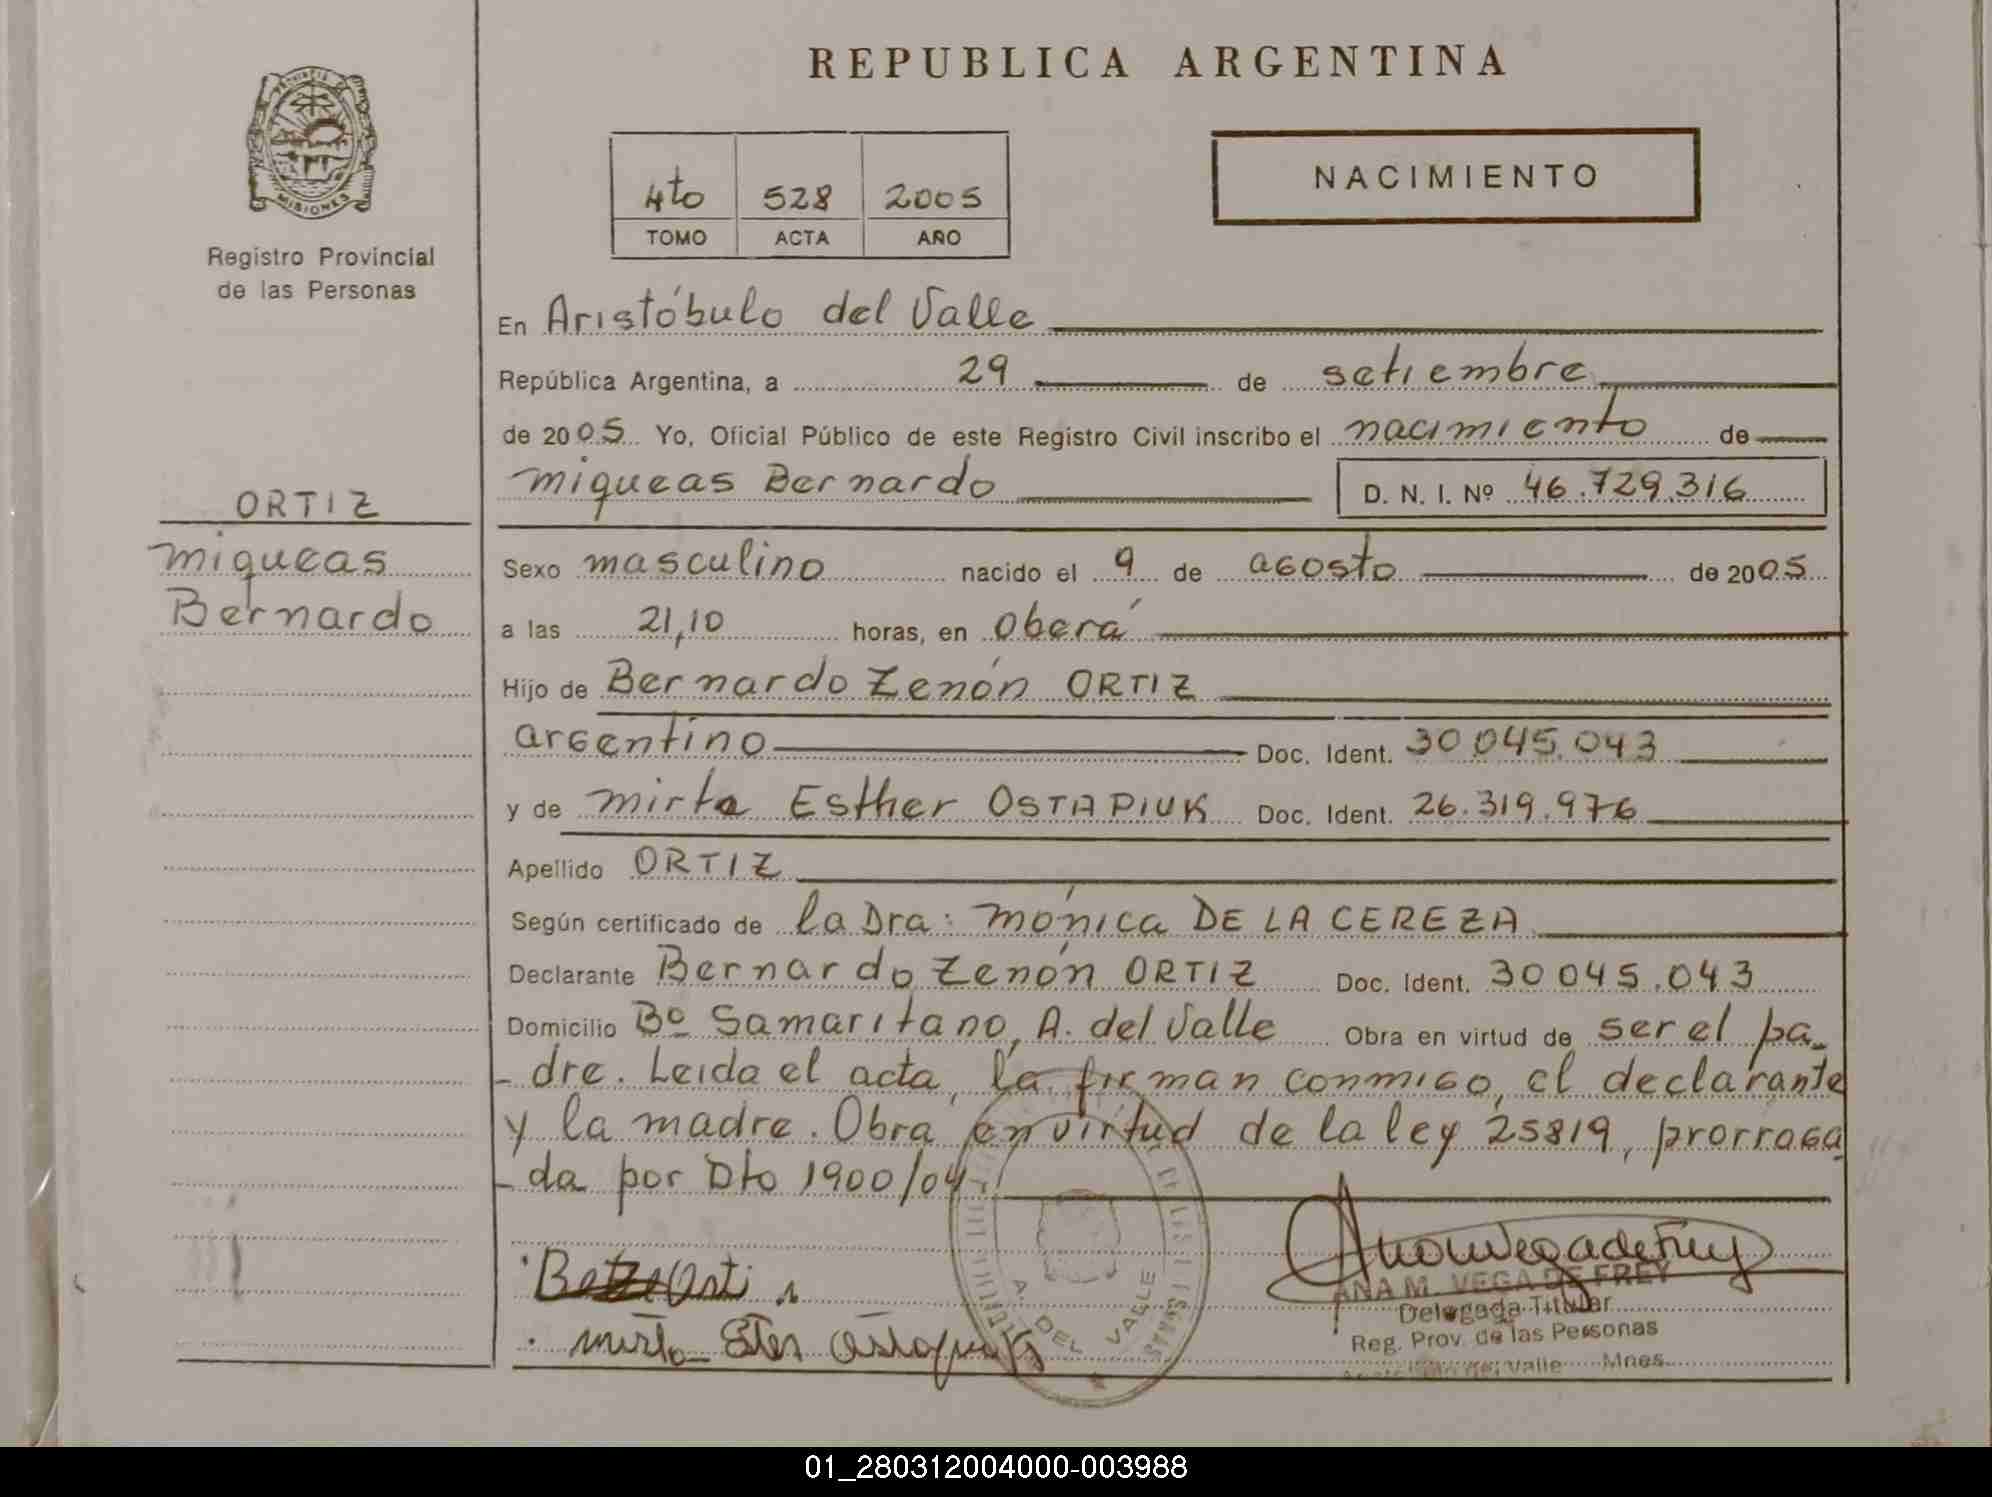 REPUBLICA ARGENTINA
MISIONES
Registro Provincial
de las Personas
4to 528 2005
TOMO ACTA AÑO
NACIMIENTO
ORTIZ
miqueas
Bernardo
En Aristóbulo del Valle
República Argentina, a 29 de setiembre
de 2005 Yo, Oficial Público de este Registro Civil inscribo el nacimiento de
miqueas Bernardo D. N. I. Nº 46.729.316
Sexo masculino nacido el 9 de agosto de 2005
a las 21,10 horas, en Oberá
Hijo de Bernardo Zenón ORTIZ
argentino Doc. Ident. 30 045.043
y de mirta Esther OSTAPIUK Doc. Ident. 26.319.976
Apellido ORTIZ
Según certificado de la Dra: mónica DE LA CEREZA
Declarante Bernardo Zenón ORTIZ Doc. Ident. 30 045.043
Domicilio Bº Samaritano, A. del Valle Obra en virtud de ser el pa-
-dre. Leida el acta, la firman conmigo, el declarante
y la madre. Obra en virtud de la ley 25819, prorroga
-da por Dto 1900/04
A. DEL VALLE
ANA M. VEGA DE FREY
Delegada Titular
Reg. Prov. de las Personas
del Valle Mnes.
01_280312004000-003988